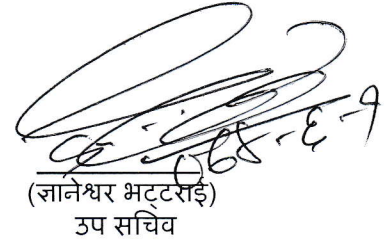 ०६८-६-१
(ज्ञानेश्वर भट्टराई)
उप सचिव